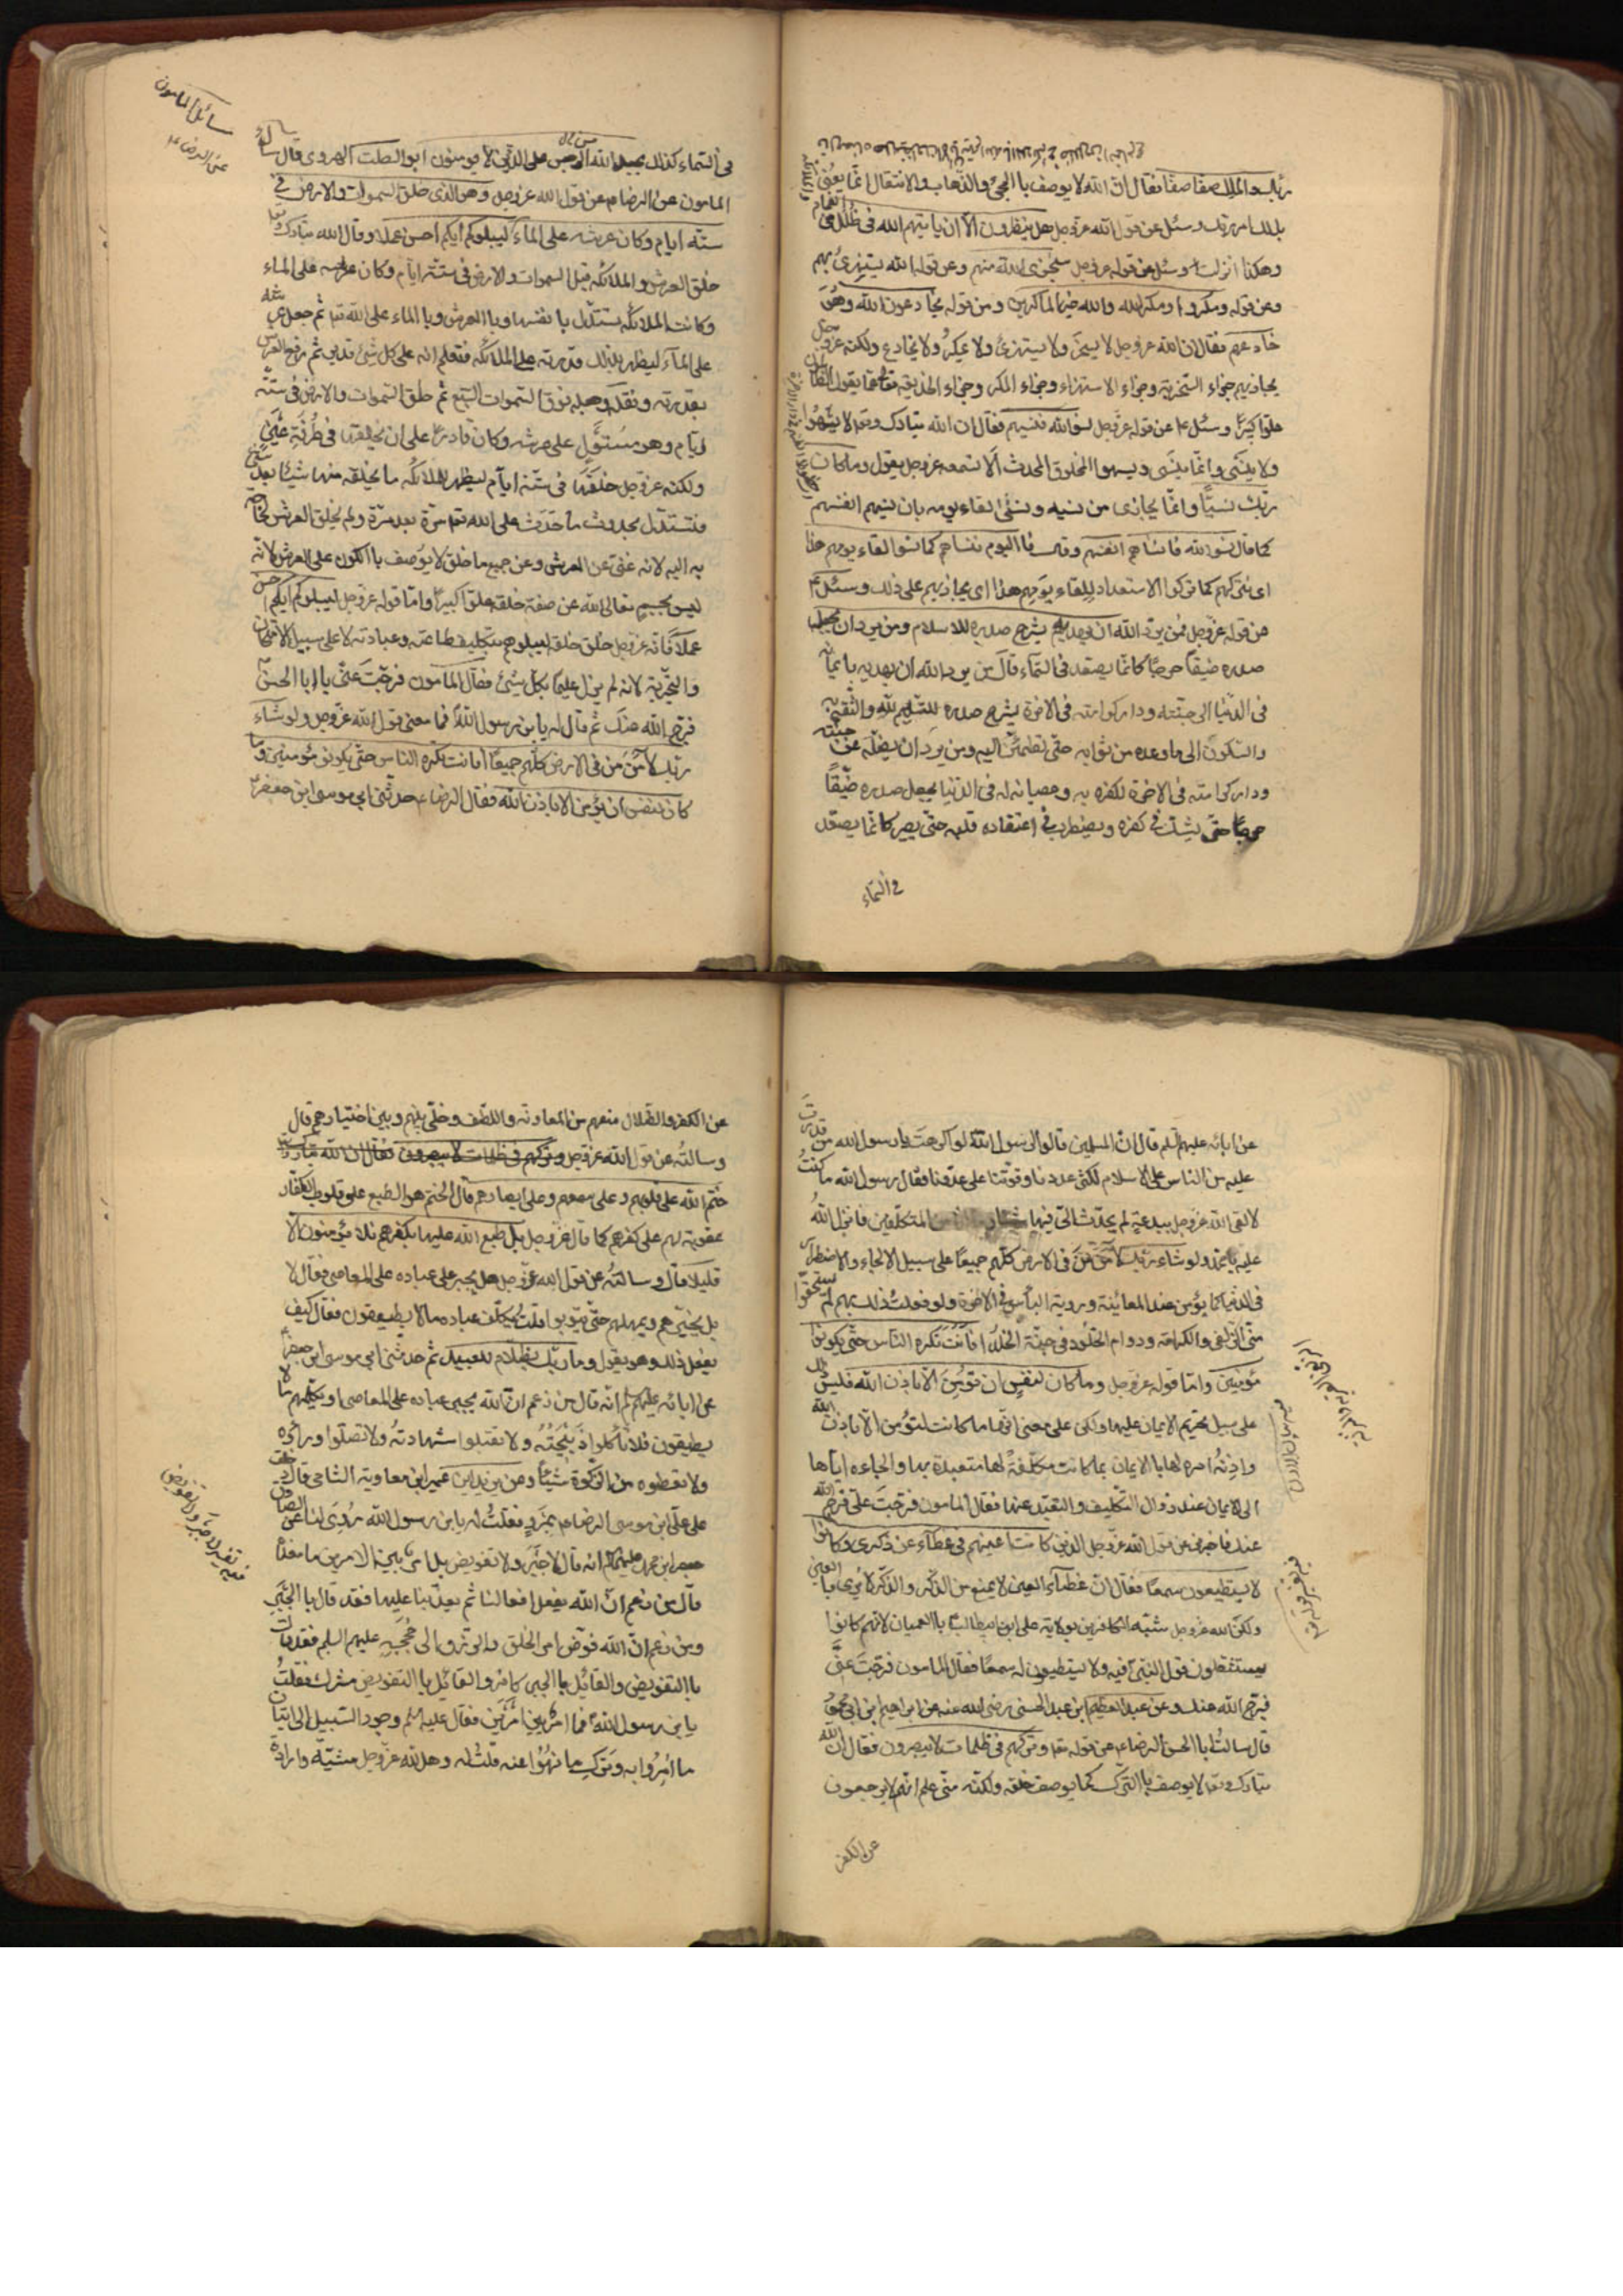 ربك والملك صفا صفا فقال ان الله لا يوصف باالمجئ والذهاب والانتقال انما يعنى
بذلك امر ربك وسئل عن قول الله عزوجل هل ينظرون الا ان ياتيهم الله فى ظلل من الغمام
وهكذا انزلت وسئل عن قوله عزوجل سخر الله منهم وعن قوله الله يستهزئ بهم
وعن قوله ومكروا ومكر الله والله خير الماكرين ومن قوله يخادعون الله وهو
خادعهم فقال ان الله عزوجل لا يسخر ولا يستهزئ ولا يمكر ولا يخادع ولكنه عزوجل
يجازيهم جزاء السخرية وجزاء الاستهزاء وجزاء المكر وجزاء الخديعة تعالى عما يقول الظالمون
علوا كبيرا وسئل عن قوله عزوجل نسوا الله فنسيهم فقال ان الله تبارك وتعا لا يسهوا
ولا ينسى وانما ينسى ويسهوا المخلوق المحدث الا تسمعه عزوجل يقول وما كان
ربك نسيا وانما يجازى من نسيه ونسى لقاء يومه بان ينسيهم انفسهم
كما قال نسوا الله فانساهم انفسهم وقال فااليوم ننساهم كما نسوا لقاء يومهم هذا
اى نتركهم كما تركوا الاستعداد للقاء يومهم هذا اى يجازيهم على ذلك وسئل
عن قوله عزوجل فمن يرد الله ان يهديه يشرح صدره للاسلام ومن يرد ان يضله يجعل
صدره ضيقا حرجا كانما يصعد فى السماء قال من يرد الله ان يهديه بايمانه
فى الدنيا الى جنته ودار كرامته فى الاخرة يشرح صدره للتسليم لله والثقة به
والسكون الى ما وعده من ثوابه حتى تطمئن اليه ومن يرد ان يضله عن جنته
ودار كرامته فى الاخرة لكفره به وعصيانه له فى الدنيا يجعل صدره ضيقا
حرجا حتى يشك فى كفره ويضطرب فى اعتقاده قلبه حتى يصير كانما يصعد
فى السماء
مسائل المامون
عن الرضا ع
فى السماء كذلك يجعل الله الرجس على الذين لا يومنون ابو الصلت الهروى قال سال
المامون عن الرضا عن قول الله عزوجل وهو الذى خلق السموات والارض فى
ستة ايام وكان عرشه على الماء ليبلوكم ايكم احسن عملا وقال الله تبارك وتعا
خلق العرش والملائكة قبل السموات والارض فى ستة ايام وكان عرشه على الماء
وكانت الملائكة تستدل بانفسها وباالعرش وباالماء على الله تعا ثم جعل عرشه
على المآء ليظهر بذلك قدرته على الملائكة فتعلم انه على كل شئ قدير ثم رفع العرش
بقدرته ونقله وجعله فوق السموات السبع ثم خلق السموات والارض فى ستة
ايام وهو مستول على عرشه وكان قادرا على ان يخلقها فى طرفة عين
ولكنه عزوجل خلقها فى ستة ايام ليظهر للملائكة ما يخلقه منها شيئا بعد شئ
فتستدل بحدوث ما حدث على الله تعا مرة بعد مرة ولم يخلق العرش لحاجة
به اليه لانه غنى عن العرش وعن جميع ما خلق لا يوصف باالكون على العرش لانه
ليس بجسم تعالى الله عن صفة خلقه علوا كبيرا واما قوله عزوجل ليبلوكم ايكم احسن
عملا فانه عزوجل خلق خلقه ليبلوهم بتكليف طاعته وعبادته لا على سبيل الامتحان
والتجربة لانه لم يزل عليما بكل شئ فقال المآمون فرجت عنى يا ابا الحسن
فرج الله عنك ثم قال له يابن رسول الله فما معنى قول الله عزوجل ولو شاء
ربك لامن من فى الارض كلهم جميعا افانت تكره الناس حتى يكونوا مؤمنين وما
كان لنفس ان تؤمن الا باذن الله فقال الرضا ع حدثنى ابى موسى ابن جعفر
عن ابائه عليهم السلم قال ان المسلمين قالوا لرسول الله لو اكرهت يا رسول الله من قدرت
عليه من الناس على الاسلام لكثر عددنا وقوتنا على عدونا فقال رسول الله ما كنت
لالقى الله عزوجل ببدعة لم يحدث الى فيها شيئا وما انا من المتكلفين فانزل الله
عليه يا محمد ولو شاء ربك لامن من فى الارض كلهم جميعا على سبيل الالجاء والاضطرار
فى الدنيا كما يؤمن عند المعائنة وروية البأس فى الاخرة ولو فعلت ذلك بهم لم يستحقوا
منى الزلفى والكرامة ودوام الخلود فى جنة الخلد افانت تكره الناس حتى يكونوا
مؤمنين واما قوله عزوجل وما كان لنفس ان تؤمن الا باذن الله فليس ذلك
على سبيل تحريم الايمان عليها ولكن على معنى انها ما كانت لتؤمن الا باذن الله
واذنه امره لها باالايمان بما كانت مكلفة لها متعبدة بها والجاءه اياها
الى الايمان عند زوال التكليف والتعبد عنها فقال المامون فرجت على فرج الله
عنك فاخبرنى عن قول الله عزوجل الذين كانت اعينهم فى غطآء عن ذكرى وكانوا
لا يستطيعون سمعا فقال ان غطآء العين لا يمنع من الذكر والذكر لا يرى باالعين
ولكن الله عزوجل شبه الكافرين بولاية على ابن ابيطالب باالعميان لانهم كانوا
يستثقلون قول النبى فيه ولا يستطيعون له سمعا فقال المامون فرجت عنى
فرج الله عنك وعن عبد العظيم ابن عبد الحسنى رضى الله عنه عن ابراهيم ابن ابى محمود
قال سالت ابا الحسن الرضا ع عن قوله تعا وتركهم فى ظلمات لا يبصرون فقال ان الله
تبارك وتعا لا يوصف باالترك كما يوصف خلقه ولكنه متى علم انهم لا يرجعون
عن الكفر
عن الكفر والضلال منعهم من المعاونة واللطف وخلى بينهم وبين اختيارهم قال
وسالته عن قول الله عزوجل وتركهم فى ظلمات لا يبصرون فقال ان الله تبارك وتعا
ختم الله على قلوبهم وعلى سمعهم وعلى ابصارهم قال الختم هو الطبع على قلوب الكفار
عقوبة لهم على كفرهم كما قال عزوجل بل طبع الله عليها بكفرهم فلا يؤمنون الا
قليلا قال وسالته عن قول الله عزوجل هل يجبر على عباده على المعاصى فقال لا
بل يخيرهم ويمهلهم حتى يتوبوا قلت يكلف عباده ما لا يطيقون فقال كيف
يفعل ذلك وهو يقول وما ربك بظلام للعبيد ثم حدثنى ابى موسى ابن جعفر
عن ابائه عليهم السلم انه قال من زعم ان الله يجبر عباده على المعاصى او يكلفهم ما لا
يطيقون فلا تأكلوا ذبيحته ولا تقبلوا شهادته ولا تصلوا ورائه
ولا تعطوه من الزكوة شيئا وعن يزيد ابن عمير ابن معاوية الشامى قال دخلت
على على ابن موسى الرضا ع بمرو فقلت له يابن رسول الله روى لنا عن الصادق
جعفر ابن محمد عليهما السلم انه قال لا جبر ولا تفويض بل امر بين الامرين ما معناه
قال من زعم ان الله يفعل افعالنا ثم يعذبنا عليها فقد قال باالجبر
ومن زعم ان الله فوض امر الخلق والرزق الى حججه عليهم السلم فقد قال
باالتفويض والقائل باالجبر كافر والقائل باالتفويض مشرك فقلت
يابن رسول الله فما امر بين امرين فقال عليه السلم وجود السبيل الى اتيان
ما امروا به وترك ما نهوا عنه قلت له وهل لله عزوجل مشية وارادة
فيه تفسير لا جبر ولا تفويض